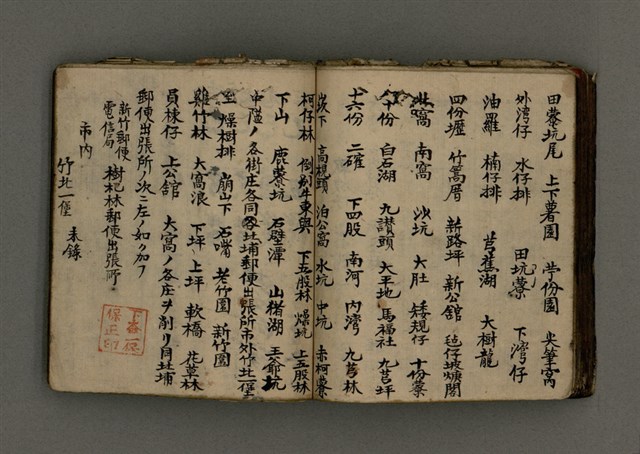 田藔坑尾 上下薯園 苧份園 尖筆窩
外湾仔 水仔排 田坑藔 下湾仔
油羅 楠仔排 芎蕉湖 大樹龍
四份堀 竹篙厝 新路坪 新公舘 毡仔坡
窩 南窩 沙坑 大肚 矮規仔 十份藔
八十份 白石湖 九讃頭 大平地 馬福社 九芎坪
十六份 二確 下四股 南河 内湾 九芎林
崁下 高梘頭 泊公窩 水坑 中坑 赤柯藔
柯仔林 倒別牛東興 下五股林 燥坑 上五股林
下山 鹿藔坑 石壁潭 山猪湖 王爺坑
中隘ノ各街庄各同 埔郵便出張所市外竹北一堡
至 燥樹排 崩山下 石嘴 老竹園 新竹園
雞竹林 大窩浪 下坪 上坪 軟橋 花草林
員崠仔 上公舘 大窩ノ各庄ヲ削リ月 埔
郵便出張所ノ次ニ左ノ如ク加フ
新竹郵便電信局 樹杞林郵便出張所
市内
竹北一堡 表錄
保正印